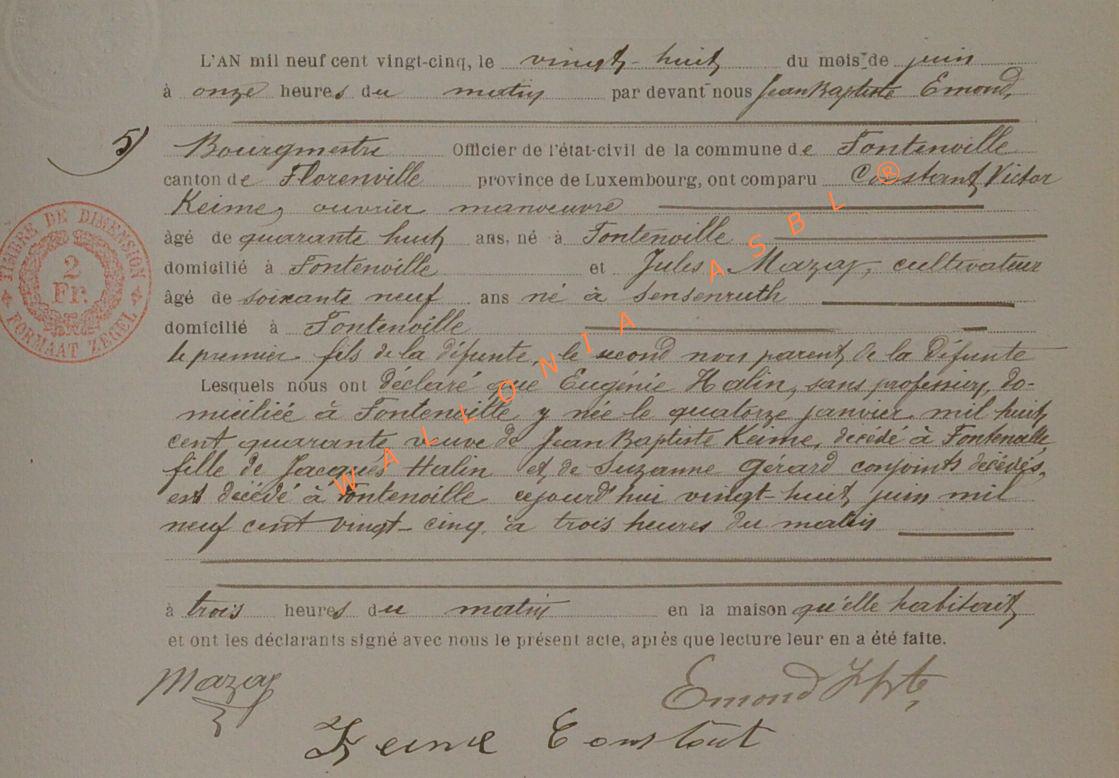 L'AN mil neuf cent vingt-cinq, le vingt-huit du mois de juin
à onze heures du matin par devant nous Jean Baptiste Emond,
5) Bourgmestre Officier de l'état-civil de la commune de Fontenoille
canton de Florenville province de Luxembourg, ont comparu Constant Victor
Keime, ouvrier manoeuvre
âgé de quarante huit ans, né à Fontenoille
domicilié à Fontenoille et Jules Mazay, cultivateur
âgé de soixante neuf ans né à Sensenruth
domicilié à Fontenoille
le premier fils de la défunte, le second non parent de la défunte
Lesquels nous ont déclaré que Eugénie Halin, sans profession, do-
miciliée à Fontenoille, y née le quatorze janvier mil huit
cent quarante veuve de Jean Baptiste Keime, décédé à Fontenoille
fille de Jacques Halin et de Suzanne Gérard conjoints décédés,
est décédé à Fontenoille cejourd'hui vingt-huit juin mil
neuf cent vingt-cinq à trois heures du matin
à trois heures du matin en la maison qu'elle habitait
et ont les déclarants signé avec nous le présent acte, après que lecture leur en a été faite.
Mazay
Emond JBte,
Keime Constant
TIMBRE DE DIMENSION
2
Fr.
FORMAAT ZEGEL
WALLONIA ASBL ®